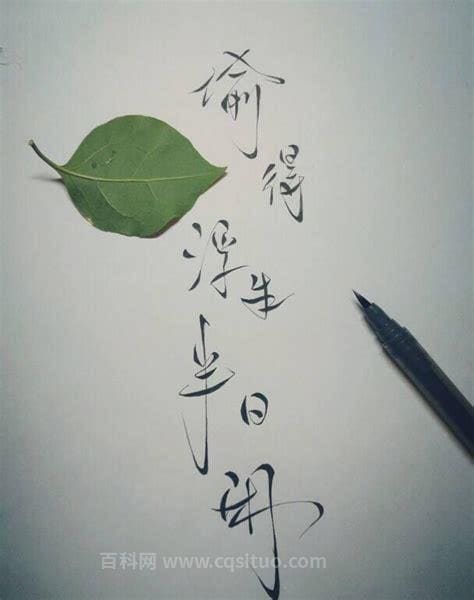 偷得浮生半日闲
百科网 www.cqsituo.com